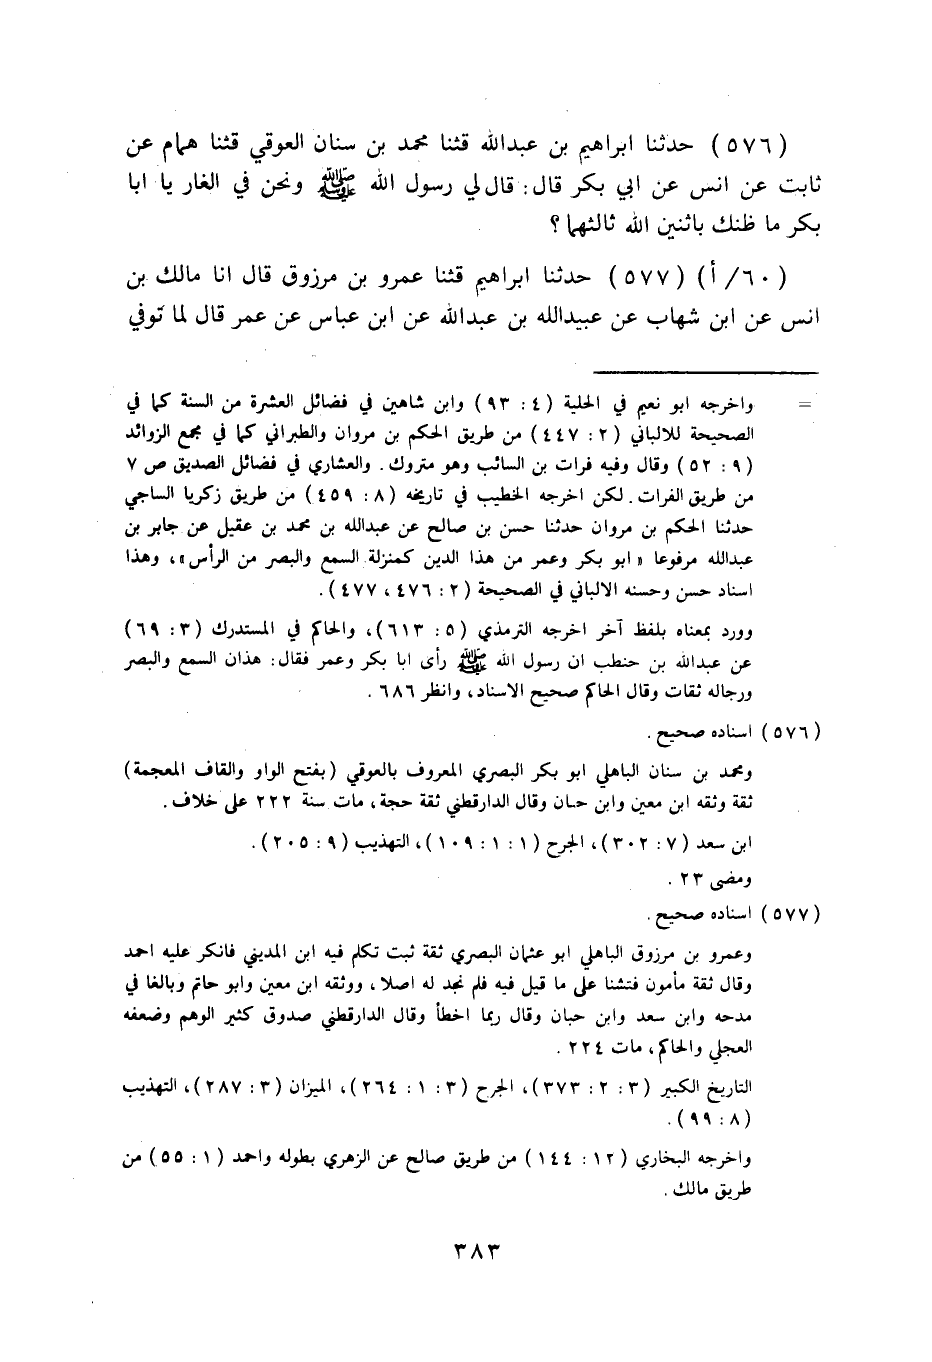 (٥٧٦) حدثنا ابراهيم بن عبدالله قثنا محمد بن سنان العوقي قثنا همام عن
ثابت عن انس عن ابي بكر قال: قال لي رسول الله ﷺ ونحن في الغار يا ابا
بكر ما ظنك باثنين الله ثالثهما؟
(٦٠/أ) (٥٧٧) حدثنا ابراهيم قثنا عمرو بن مرزوق قال انا مالك بن
انس عن ابن شهاب عن عبيدالله بن عبدالله عن ابن عباس عن عمر قال لما توفي
= واخرجه ابو نعيم في الحلية (٤: ٩٣) وابن شاهين في فضائل العشرة من السنة كما في
الصحيحة للالباني (٢: ٤٤٧) من طريق الحكم بن مروان والطبراني كما في مجمع الزوائد
(٩: ٥٢) وقال وفيه فرات بن السائب وهو متروك. والعشاري في فضائل الصديق ص ٧
من طريق الفرات. لكن اخرجه الخطيب في تاريخه (٨: ٤٥٩) من طريق زكريا الساجي
حدثنا الحكم بن مروان حدثنا حسن بن صالح عن عبدالله بن محمد بن عقيل عن جابر بن
عبدالله مرفوعا «ابو بكر وعمر من هذا الدين كمنزلة السمع والبصر من الرأس»، وهذا
اسناد حسن وحسنه الالباني في الصحيحة (٢: ٤٧٦، ٤٧٧).
وورد بمعناه بلفظ آخر اخرجه الترمذي (٥: ٦١٣)، والحاكم في المستدرك (٣: ٦٩)
عن عبدالله بن حنطب ان رسول الله ﷺ رأى ابا بكر وعمر فقال: هذان السمع والبصر
ورجاله ثقات وقال الحاكم صحيح الاسناد، وانظر ٦٨٦.
(٥٧٦) اسناده صحيح.
ومحمد بن سنان الباهلي ابو بكر البصري المعروف بالعوقي (بفتح الواو والقاف المعجمة)
ثقة وثقه ابن معين وابن حبان وقال الدارقطني ثقة حجة، مات سنة ٢٢٢ على خلاف.
ابن سعد (٧: ٣٠٢)، الجرح (١: ١: ١٠٩)، التهذيب (٩: ٢٠٥).
ومضى ٢٣.
(٥٧٧) اسناده صحيح.
وعمرو بن مرزوق الباهلي ابو عثمان البصري ثقة ثبت تكلم فيه ابن المديني فانكر عليه احمد
وقال ثقة مأمون فتشنا على ما قيل فيه فلم نجد له اصلا، ووثقه ابن معين وابو حاتم وبالغا في
مدحه وابن سعد وابن حبان وقال ربما اخطأ وقال الدارقطني صدوق كثير الوهم وضعفه
العجلي والحاكم، مات ٢٢٤.
التاريخ الكبير (٣: ٢: ٣٧٣)، الجرح (٣: ١: ٢٦٤)، الميزان (٣: ٢٨٧)، التهذيب
(٨: ٩٩).
واخرجه البخاري (١٢: ١٤٤) من طريق صالح عن الزهري بطوله واحمد (١: ٥٥) من
طريق مالك.
٣٨٣